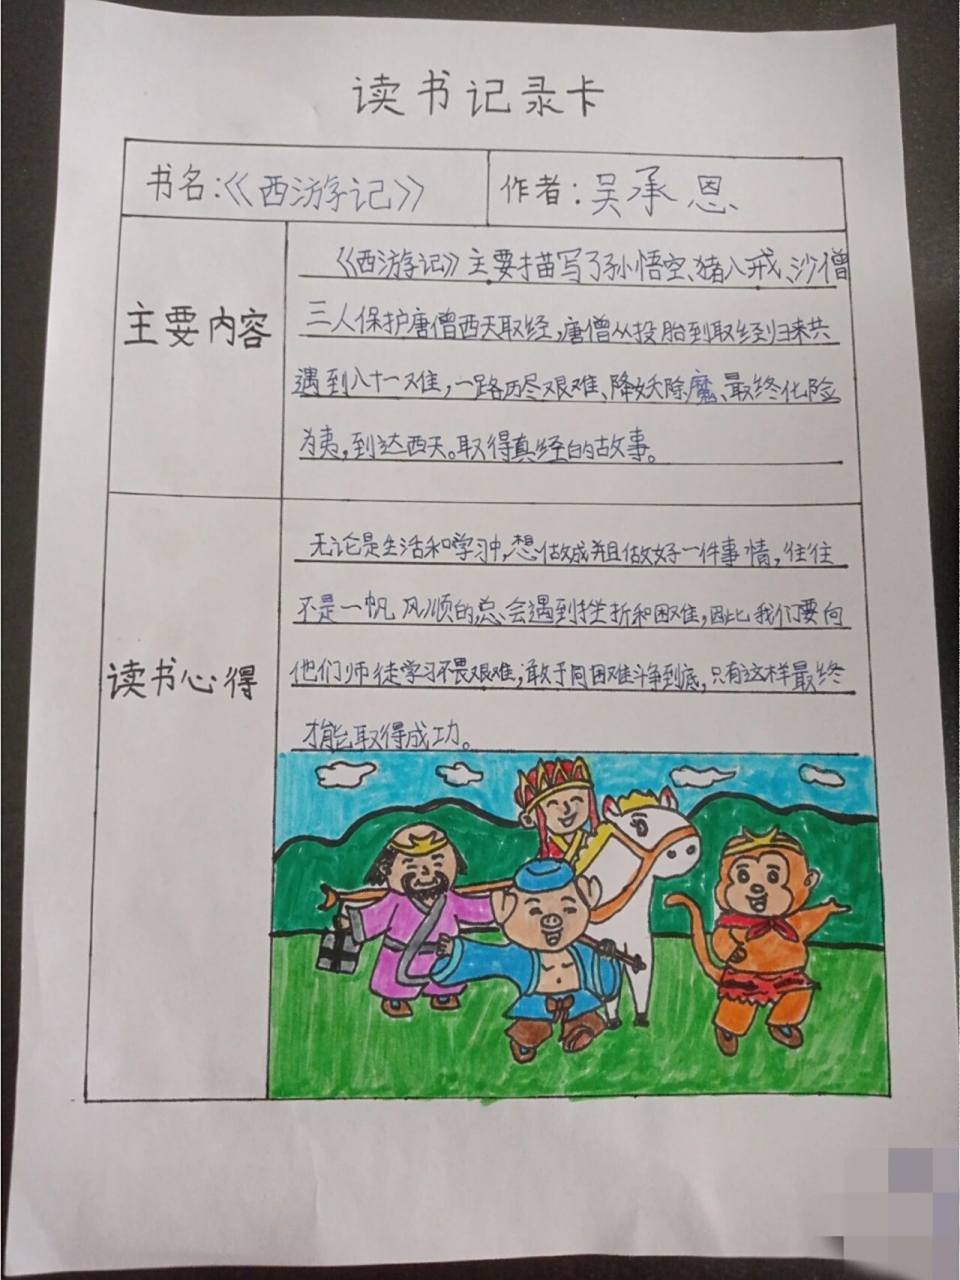 读书记录卡
书名:《西游记》
作者:吴承恩
主要内容
《西游记》主要描写了孙悟空、猪八戒、沙僧
三人保护唐僧西天取经,唐僧从投胎到取经归来共
遇到八十一难,一路历尽艰难、降妖除魔、最终化险
为夷,到达西天。取得真经的故事。
读书心得
无论是生活和学习中,想做成并且做好一件事情,往往
不是一帆风顺的总会遇到挫折和困难,因此我们要向
他们师徒学习不畏艰难,敢于同困难斗争到底,只有这样最终
才能取得成功。